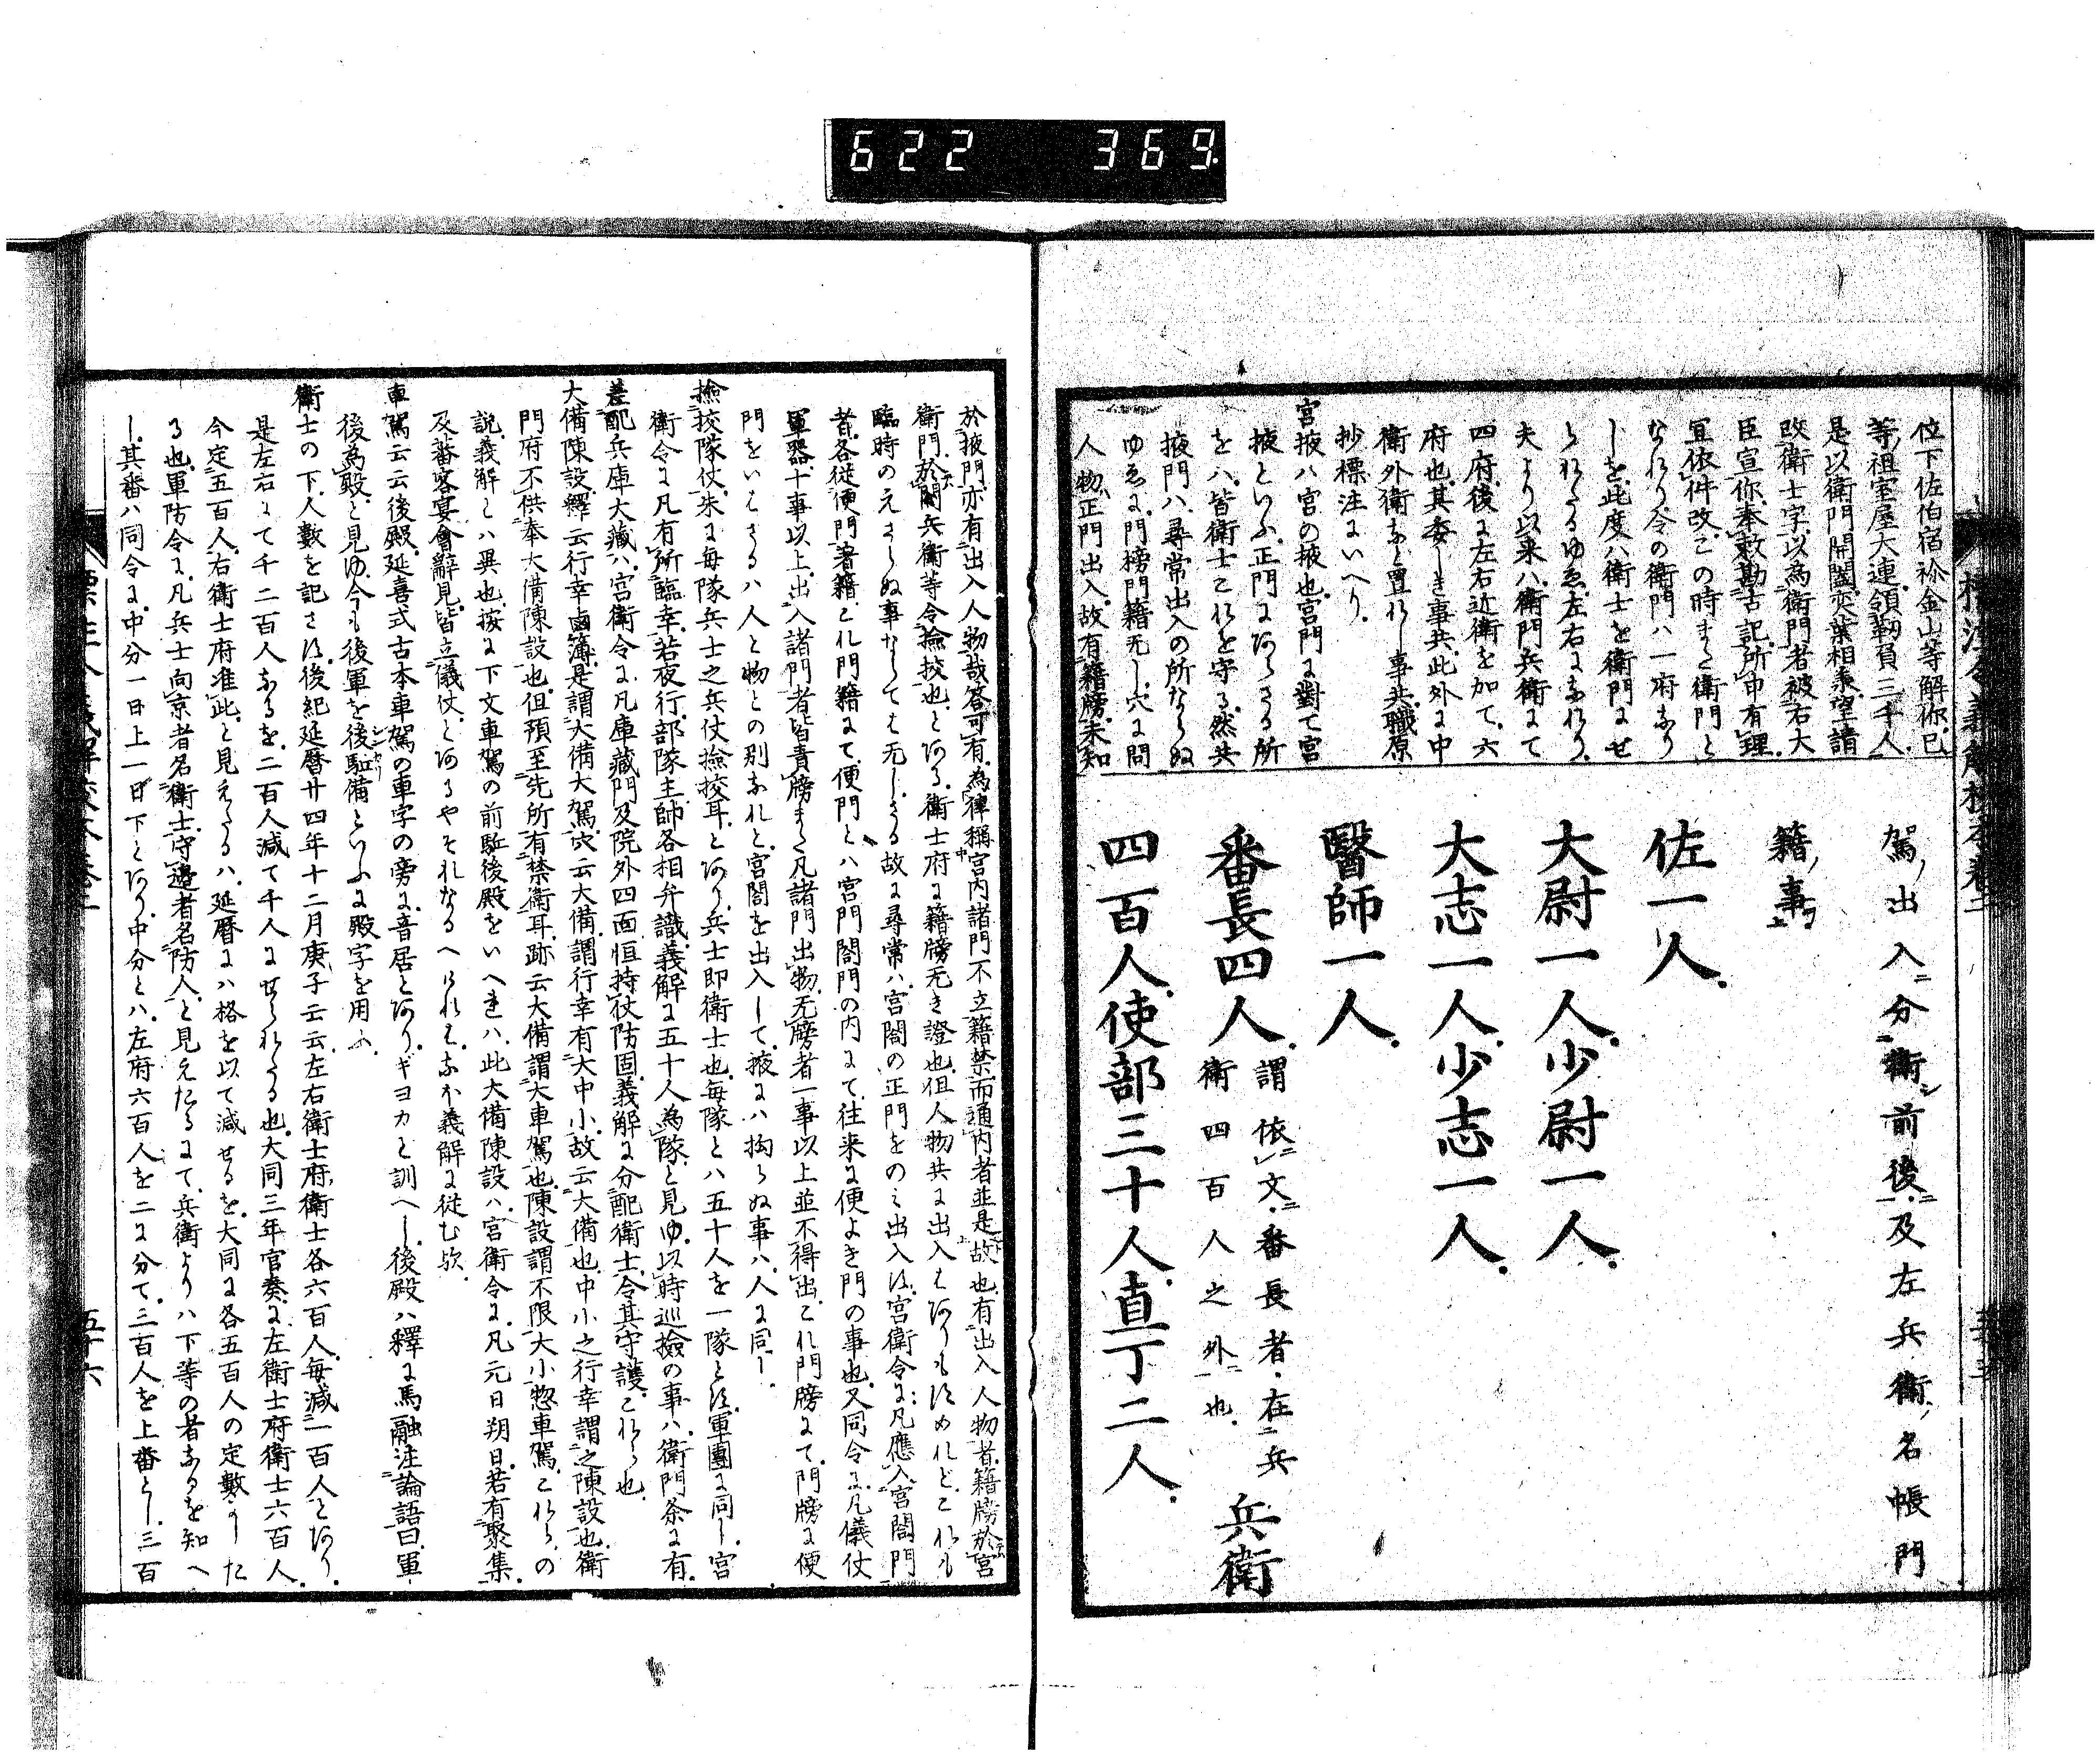 622 369
位下佐伯宿祢金山等解你已
等祖室屋大連領靱負三千人
是以衛門開闔奕葉相承望請
改衛士字以為衛門者被右大
臣宣你奉勅勘古記所申有理
宜依件改この時まて衛門と
なれり令の衛門ハ一府なり
しを此度ハ衛士を衛門にせ
られたるゆゑ左右になれり
夫より以来ハ衛門兵衛にて
四府後に左右近衛を加て六
府也其委しき事共此外に中
衛外衛なと置れし事共職原
抄標注にいへり
宮掖ハ宮の掖也宮門に對て宮
掖といふ正門にあらさる所
をハ皆衛士これを守る然共
掖門ハ尋常出入の所ならぬ
ゆゑに門榜門籍无し穴に問
人物正門出入故有籍牓未知
駕出入分衛前後及左兵衛名帳門
籍事
佐一人
大尉一人少尉一人
大志一人少志一人
醫師一人
番長四人 謂依文番長者在兵衛四百人之外也 兵衛
四百人使部三十人直丁二人
於掖門亦有出入人物哉答可有為律稱宮内諸門不立籍禁而通内者並是故也有出入人物者籍牓於宮
衛門於閤兵衛等令撿挍也とある衛士府に籍牓无き證也但人物共に出入はありもすめれどこれも
臨時のえさらぬ事ならては无しさる故に尋常ハ宮閤の正門をのミ出入す宮衛令に凡應入宮閤門
者各従便門著籍これ門籍にて便門とハ宮門閤門の内にて往来に便よき門の事也又同令に凡儀仗
軍器十事以上出入諸門者皆責牓また凡諸門出物无牓者一事以上並不得出これ門牓にて門牓に便
門をいはさるハ人と物との別なれと宮閤を出入して掖にハ拘らぬ事ハ人に同し
撿挍隊仗朱に毎隊兵士之兵仗撿挍耳とあり兵士即衛士也毎隊とハ五十人を一隊とす軍團に同し宮
衛令に凡有所臨幸若夜行部隊主帥各相弁識義解に五十人為隊と見ゆ以時巡撿の事ハ衛門条に有
差配兵庫大藏ハ宮衛令に凡庫藏門及院外四面恒持仗防固義解に分配衛士令其守護これら也
大備陳設釋云行幸鹵簿是謂大備大駕穴云大備謂行幸有大中小故云大備也中小之行幸謂之陳設也衛
門府不供奉大備陳設也但預至先所有禁衛耳跡云大備謂大車駕也陳設謂不限大小惣車駕これらの
説義解とハ異也按に下文車駕の前駈後殿をいへれハ此大備陳設ハ宮衛令に凡元日朔日若有聚集
及蕃客宴會辭見皆立儀仗とあるやそれなるへけれはなほ義解に従む欤
車駕云云後殿延喜式古本車駕の車字の旁に音居とありギヨカと訓へし後殿ハ釋に馬融注論語曰軍
後為殿と見ゆ令も後軍を後駈備といふに殿字を用ふ
衛士の下人數を記さす後紀延暦廿四年十二月庚子云云左右衛士府衛士各六百人毎減一百人とあり
是左右にて千二百人なるを二百人減て千人にせられたる也大同三年官奏に左衛士府衛士六百人
今定五百人右衛士府准此と見えたるハ延暦にハ格を以て減せるを大同に各五百人の定數かした
る也軍防令に凡兵士向京者名衛士守邊者名防人と見えたるにて兵衛よりハ下等の者なるを知へ
し其番ハ同令に中分一日上一日下とあり中分とハ左府六百人を二に分て三百人を上番とし三百
五十六